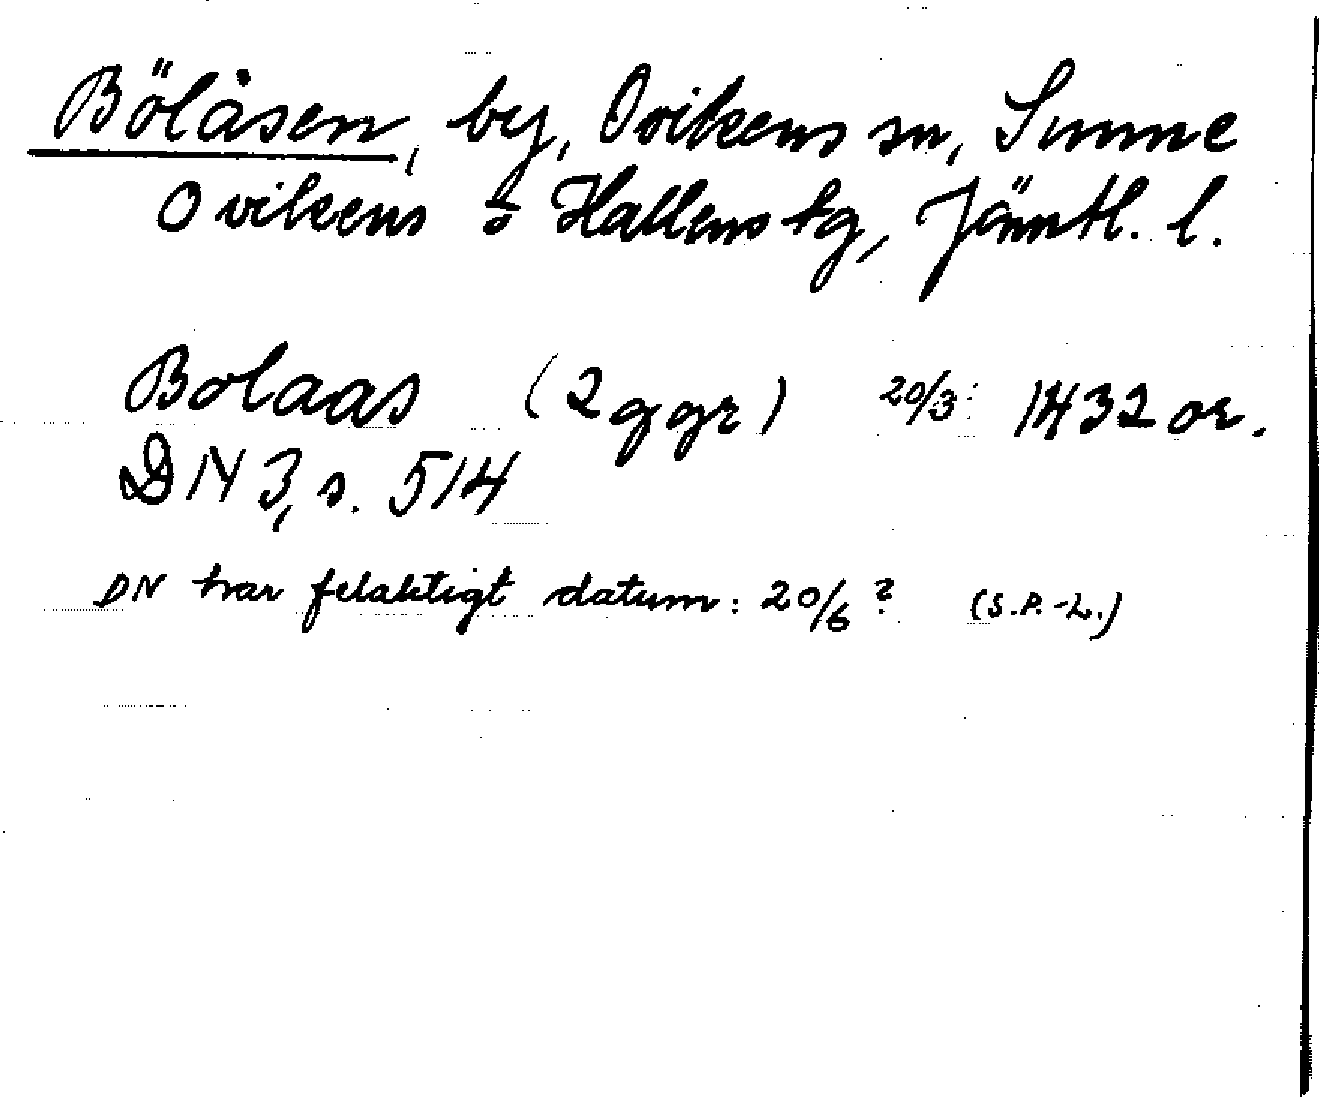 Bölåsen, by, Ovikens sn, Sunne
Ovikens o Hallens tg, Jämtl. l.
Bolaas (2 ggr) 20/3 1432 or.
DN 3, s. 514
DN har felaktigt datum: 20/6? (S.P.-L.)